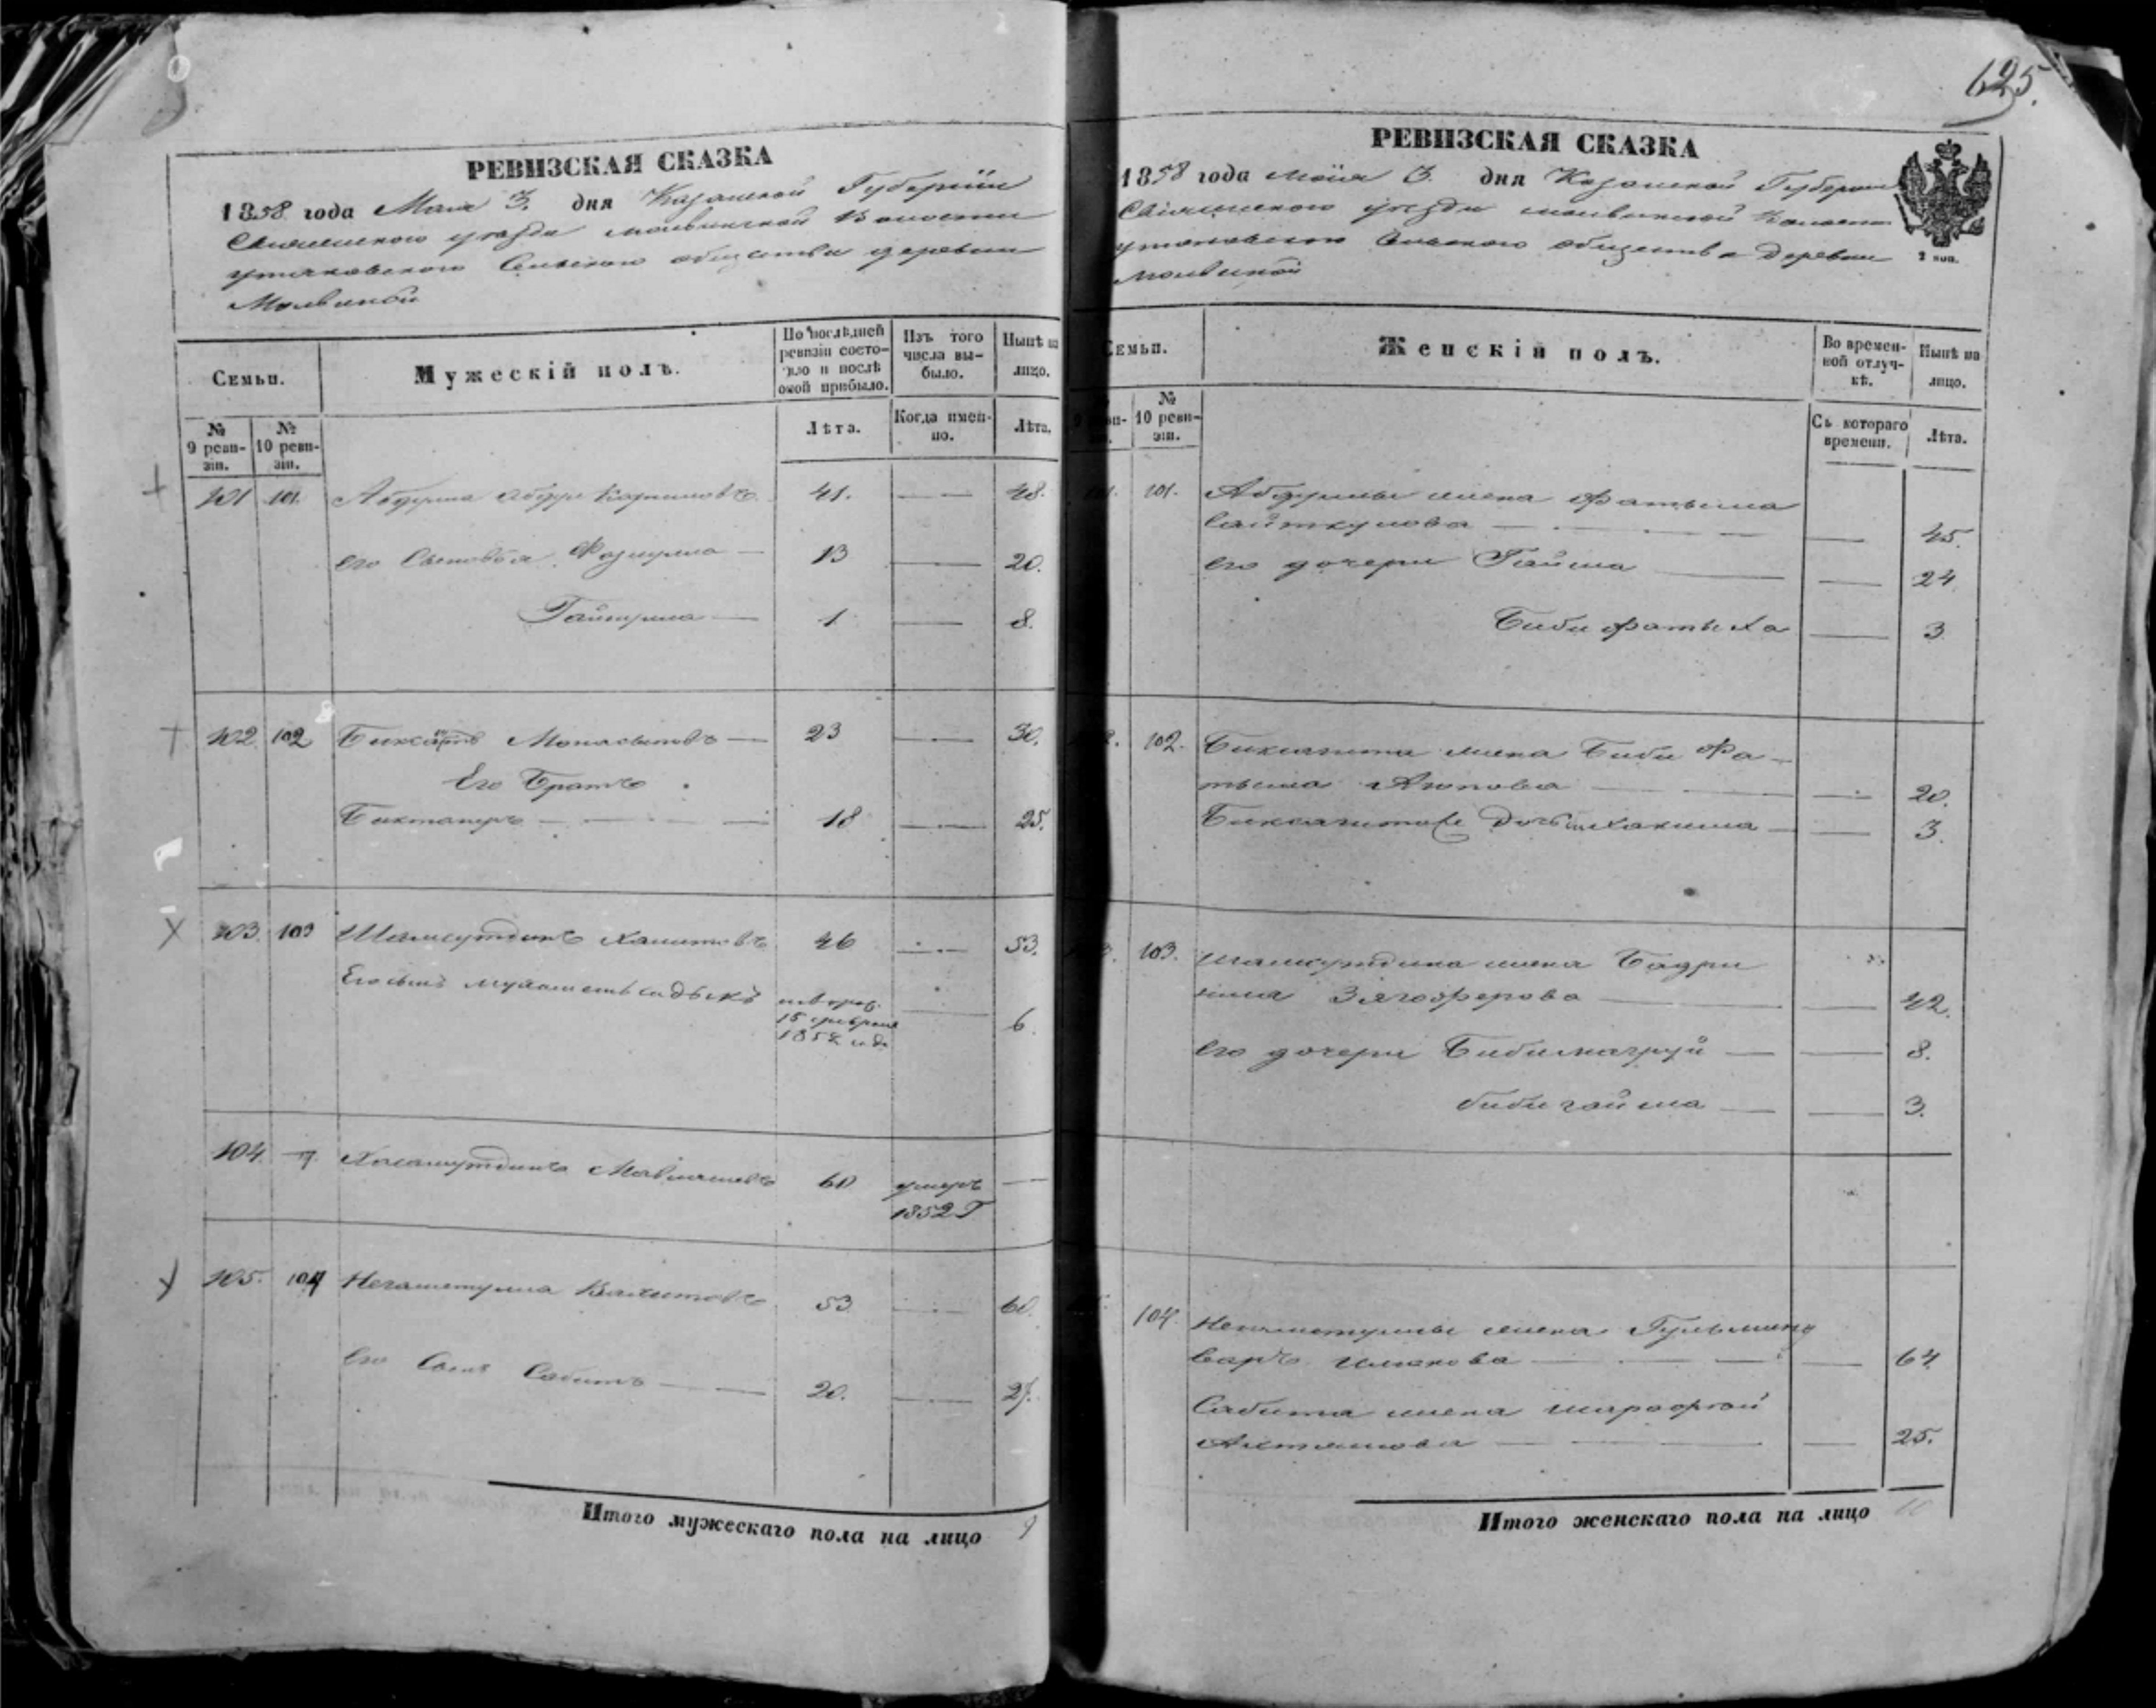 625.
РЕВИЗСКАЯ СКАЗКА
1858 года Мая 3. дня Казанской Губерніи
Свіяжскаго уѣзда Молвинской Волости
Утяковскаго Сельскаго общества деревни
Молвиной
Семьи.
Мужескій полъ.
По послѣдней
ревизіи состо-
яло и послѣ
оной прибыло.
Изъ того
числа вы-
было.
Нынѣ на
лицо.
№
9 реви-
зіи.
№
10 реви-
зіи.
Лѣта.
Когда имен-
но.
Лѣта.
101 101. Абдулла Абдул Каримовъ 41. 48.
его Сыновья Фазулла 13 20.
Гайнулла 1 8.
102 102 Монасыповъ 23 30.
Его Братъ
Биктагиръ 18 25.
103. 103 Шамсутдинъ Хамитовъ 46 53.
Его сынъ Мухаметьсадыкъ новорож.
15 февраля 6.
1852 года
104. Хисамутдинъ 60 умеръ
1852 Г
105. 104 Негаметулла Валитовъ 53 60.
Его Сынъ Сабитъ 20. 27.
Итого мужескаго пола на лицо 9
РЕВИЗСКАЯ СКАЗКА
1858 года мая 3. дня Казанской Губерніи
Свіяжскаго уѣзда молвинской Волости
утяковскаго Сельскаго общества деревни
молвиной
2 коп.
Семьи.
Женскій полъ.
Во времен-
ной отлуч-
кѣ.
Нынѣ на
лицо.
№
10 реви-
зіи.
Съ котораго
времени.
Лѣта.
101. Абдуллы жена Фатыма
Сайткулова 45.
его дочери Гайша 24
Биби Фатыха 3
102. жена Биби Фа-
тыма Аюпова 20.
дочь 3.
103. Шамсутдина жена Бадри
Зягоферова 42.
его дочери 8.
биби гайша 3.
104. Негаметуллы жена
64
Сабита жена
25.
Итого женскаго пола на лицо